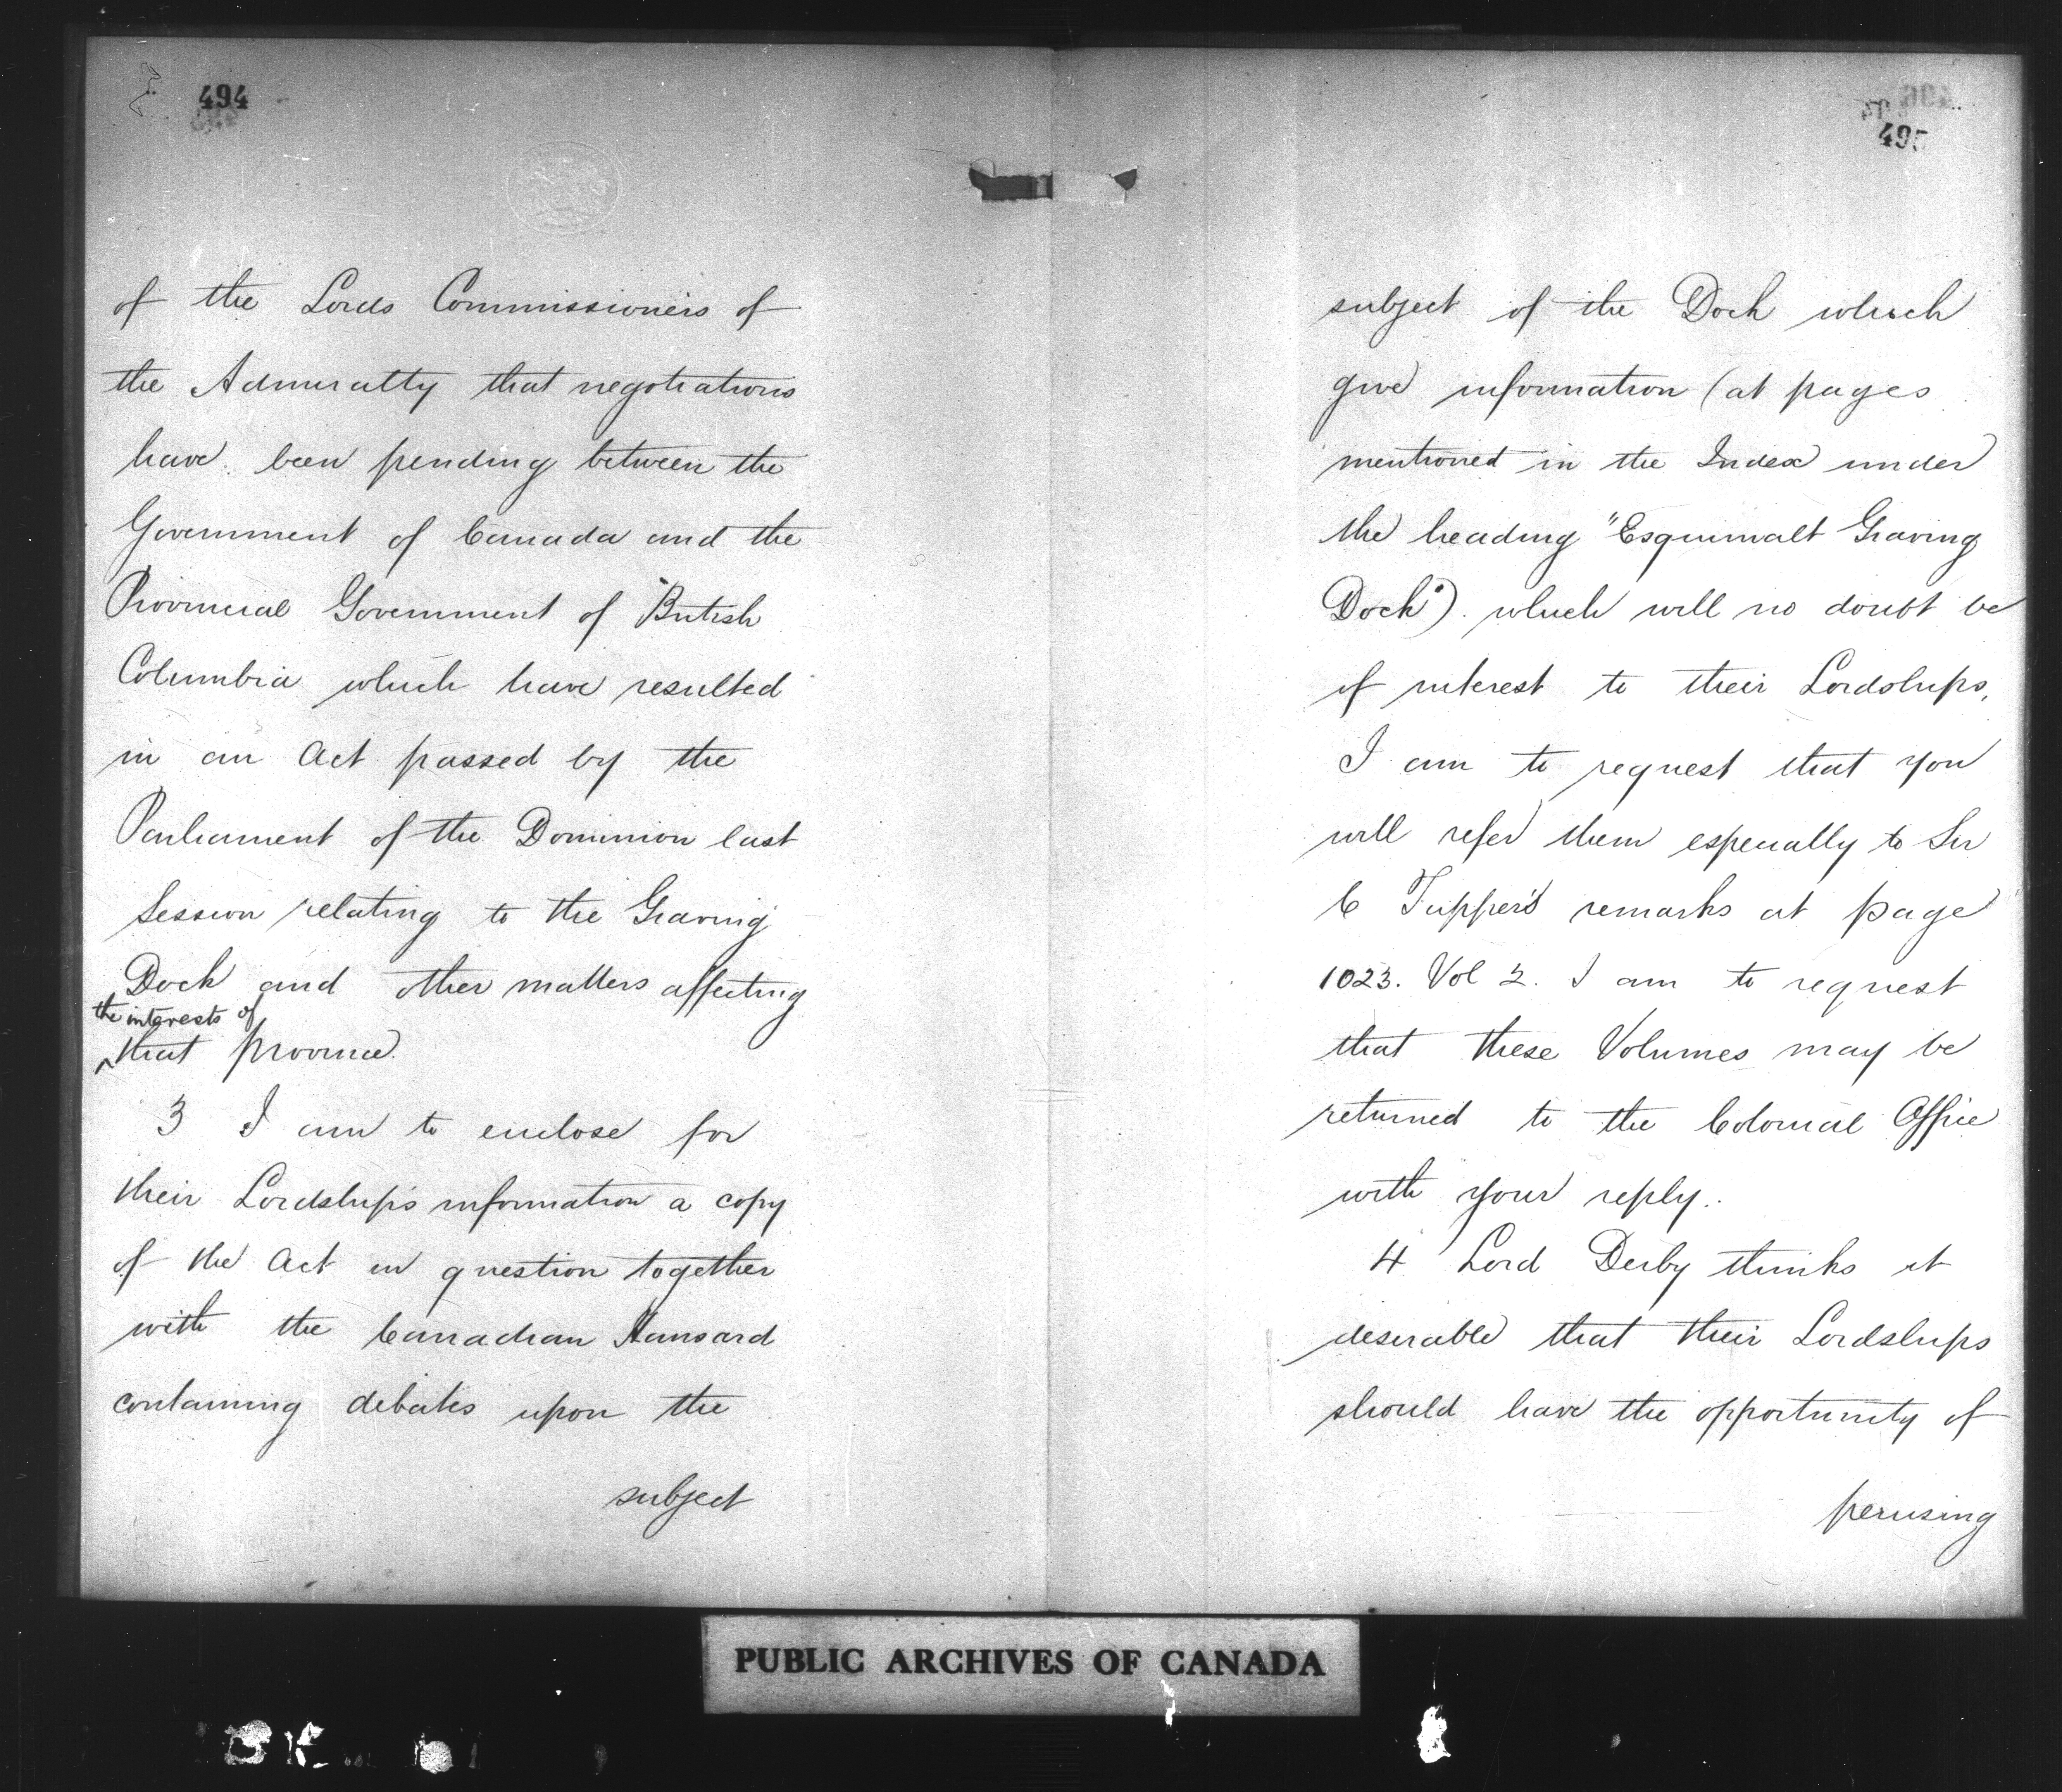 494
of the Lords Commissioners of
the Admiralty that negotiations
have been pending between the
Government of Canada and the
Provincial Government of British
Columbia which have resulted
in an Act passed by the
Parliament of the Dominion last
Session relating to the Graving
Dock and other matters affecting
the interests of
that province.
3 I am to enclose for
their Lordships information a copy
of the Act in question together
with the Canadian Hansard
containing debates upon the
subject
495
subject of the Dock which
give information (at pages
mentioned in the Index under
the heading "Esquimalt Graving
Dock") which will no doubt be
of interest to their Lordships,
I am to request that you
will refer them especially to Sir
C Tupper's remarks at page
1023. Vol 2. I am to request
that these Volumes may be
returned to the Colonial Office
with your reply.
4 Lord Derby thinks it
desirable that their Lordships
should have the opportunity of
perusing
PUBLIC ARCHIVES OF CANADA